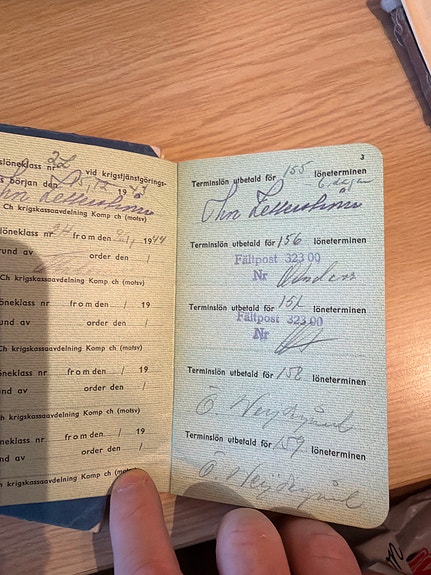 slöneklass nr 22 vid krigstjänstgörings-
s början den 15/12 1943
Ch krigskassaavdelning Komp ch (motsv)
löneklass nr 24 from den 1/1 1944
und av order den /
Ch krigskassaavdelning Komp ch (motsv)
öneklass nr from den / 19
rund av order den /
Ch krigskassaavdelning Komp ch (motsv)
öneklass nr from den / 19
und av order den /
h krigskassaavdelning Komp ch (motsv)
neklass nr from den / 19
nd av order den /
h krigskassaavdelning Komp ch (motsv)
3
Terminslön utbetald för 155 löneterminen
6 dagar
Terminslön utbetald för 156 löneterminen
Fältpost 323 00
Nr
Terminslön utbetald för 157 löneterminen
Fältpost 323 00
Nr
Terminslön utbetald för 158 löneterminen
Terminslön utbetald för 159 löneterminen